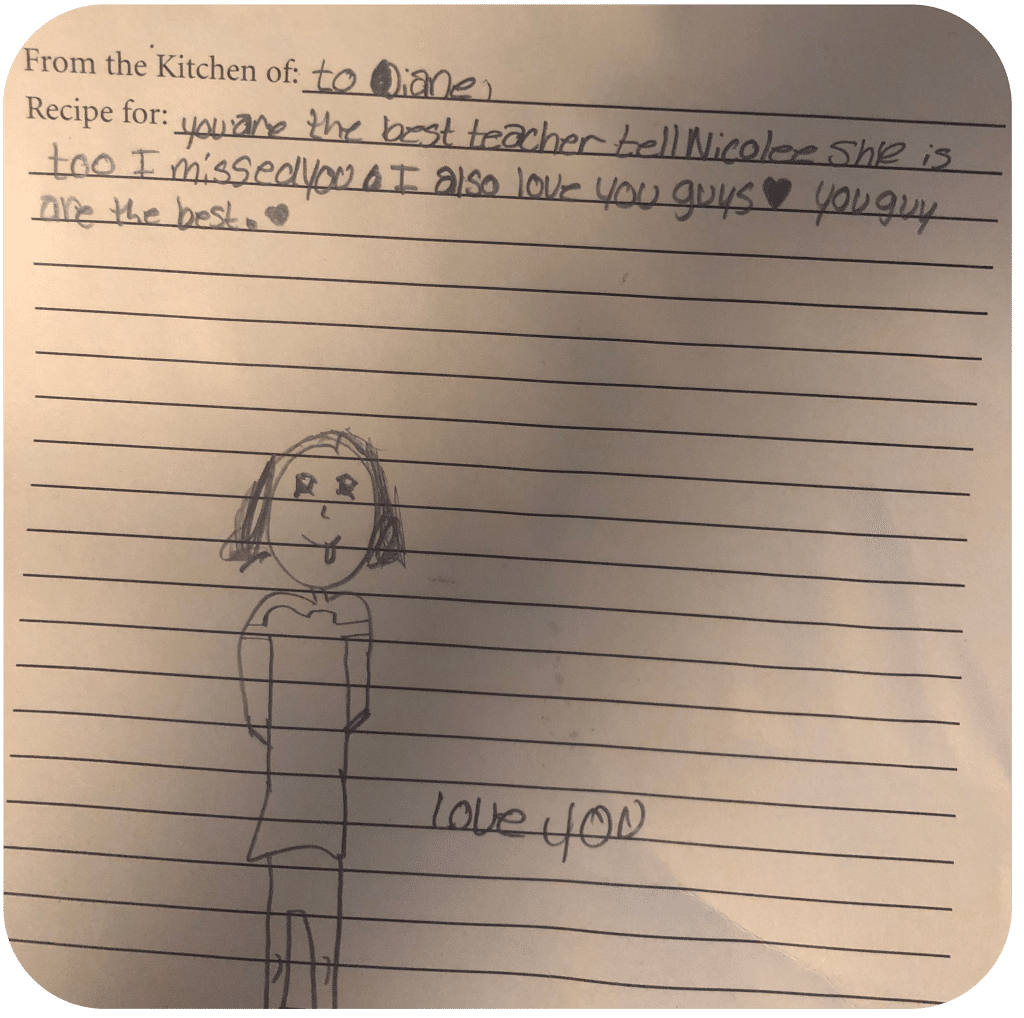 From the Kitchen of: to Diane,
Recipe for: you are the best teacher tell Nicolee she is
too I missed you & I also love you guys ♥ you guy
are the best. ♥
love you